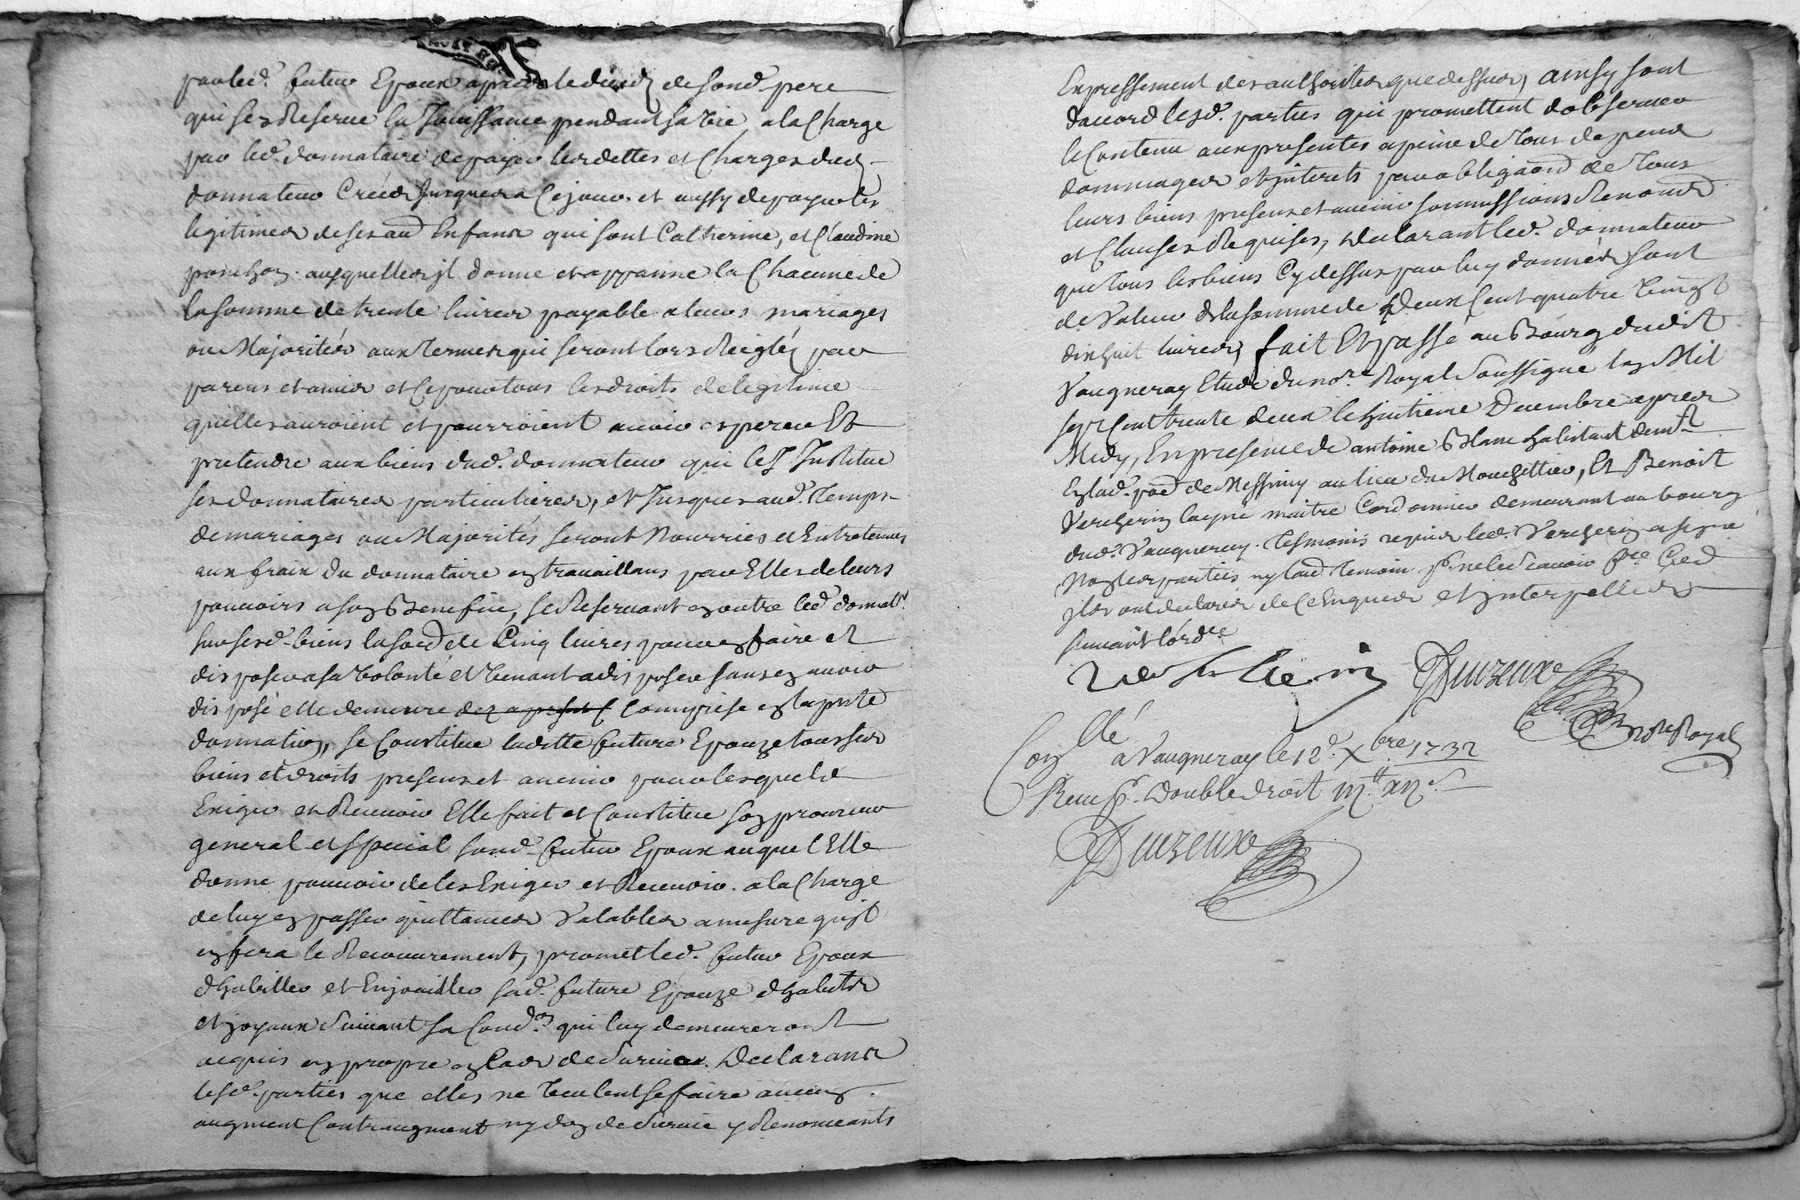 par led. futur Epoux apres le deced de sond. pere
qui se Reserue la Jouissance pendant sa vie, a la Charge
par led. donnataire de payer les dettes et Charges dud.
donnateur Créés Jusques a Ce jour, et aussy de payer les
legitimes de ses aud Enfans qui sont Catherine, et Claudine
ausquelles jl donne et appanne la Chacune de
la somme de trente liures payable a leurs mariages
ou Majorités aux termes qui seront lors Reiglés par
parens et amis et Ce pour tous les droits de legitime
quelles auroient et pourroient auoir esperer Et
pretendre aux biens dud. donnateur qui les Institue
ses donnataires particulieres, et Jusques aud. Temps
de mariages ou Majorités seront Nourries et Entretenues
aux fraix du donnataire en trauaillans par Elles de leurs
pouuoirs a son Benefice, se Reseruant en outre led donnatr.
sur sesd. biens la so.e de Cinq liures pour en faire et
disposer a sa volonté et venant a disposer sans en auoir
disposé elle demeure Comprise en la pnte
donnation, se Constitue laditte future Epouze tous ses
biens et droits presens et auenir pour lesquels
Exiger et Receuoir Elle fait et Constitue son procureur
general et special sond. futur Epoux auquel Elle
donne pouuoir de les Exiger et Receuoir. a la Charge
de luy en passer quittances Valables a mesure qu'jl
en fera le Recouurement, promet led. futur Epoux
d'habiller et Enjoailler sad. future Epouze d'habits
et joyaux Suiuant sa Cond.on qui luy demeureront
acquis en propre en Cas de Suruie. Declarans
lesd. parties que elles ne veulent se faire aucun
augment Contraugment ny don de Suruie y Renonceants
Expressement des authorites que dessus, ainsy sont
d'accord lesd. parties qui promettent d'obseruer
le Contenu aux presentes a peine de tous depens
dommages et jnterets par obligaon de tous
leurs biens presens et auenir sommissions Renonons
et Clauses Requises, Declarant led. donnateur
que tous les biens Cy dessus par luy donnés sont
de Valeur de la somme de Deux Cent quatre vingt
dix huit liures, fait Et passé au Bourg dudit
Vaugneray Etude du nore. Royal Soussigne Lan Mil
sept Cent trente deux le huitieme Decembre apres
Midy, En presence de antoine Blanc habitant
En lad. pae de Messimy au lieu du Mouchettier, Et Benoit
Vercherin layné maitre Cordonnier demeurant au bourg
dud. Vaugneray. Tesmoins requis led. Vercherin a signé
Non les parties ny laud. temoin pr. ne le Scauoir fre Ced
jls ont declarés de Ce Enquis et jnterpellés
suiuant l'ordce
Vercherin Duzeuxe
No.re Royal
Conllé a Vaugneray le 12e. Xbre 1732
Receu pr. double droit
Duzeuxe